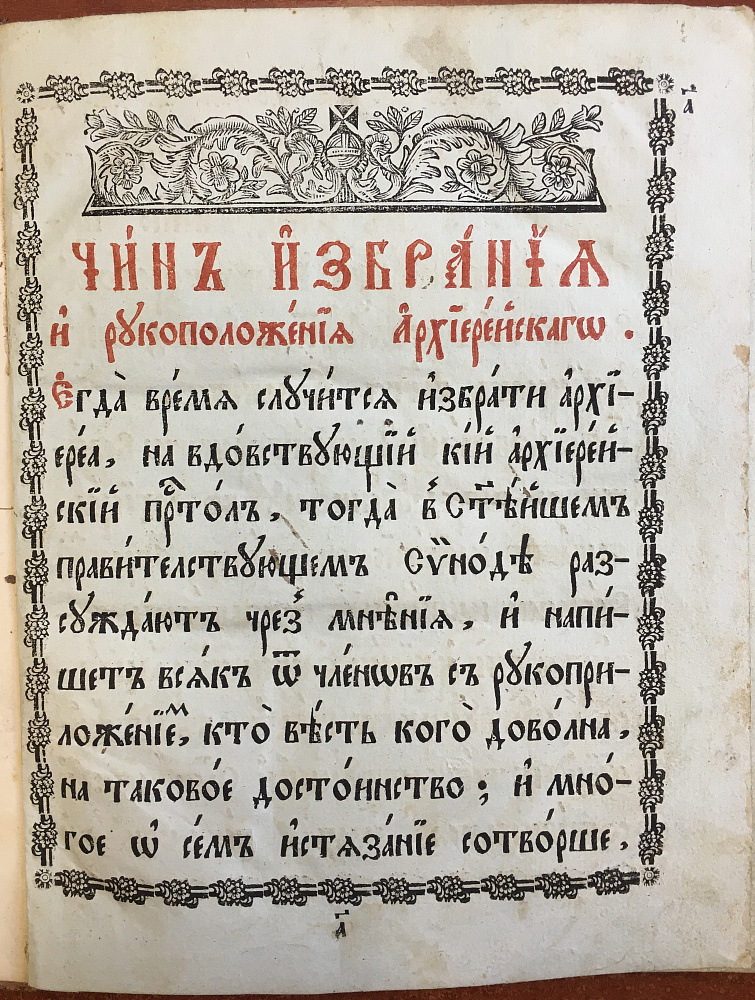 а҃
ЧИ́НЪ И҆ЗБРА́НЇѦ
и҆ рꙋкоположе́нїѧ А҆рхїере́йскагѡ .
Е҆гда̀ вре́мѧ слꙋчи́тсѧ и҆збра́ти а҆рхї-
ере́а , на вдо́вствꙋющїй кі́й а҆рхїере́й-
скїй прⷭ҇то́лъ , тогда̀ в̾ Ст҃ѣ́йшемъ
прави́телствꙋющемъ Сѷно́дѣ раз-
сꙋжда́ютъ чрез̾ мнѣ́нїѧ , и҆ напи́-
шетъ всѧ́къ ѿ чле́нѡвъ съ рꙋкопри-
ложе́нїемъ , кто̀ вѣ́сть кого̀ дово́лна ,
на таково́е досто́инство ; и҆ мно́-
гое ѡ҆ се́мъ и҆стѧза́нїе сотво́рше ,
а҃